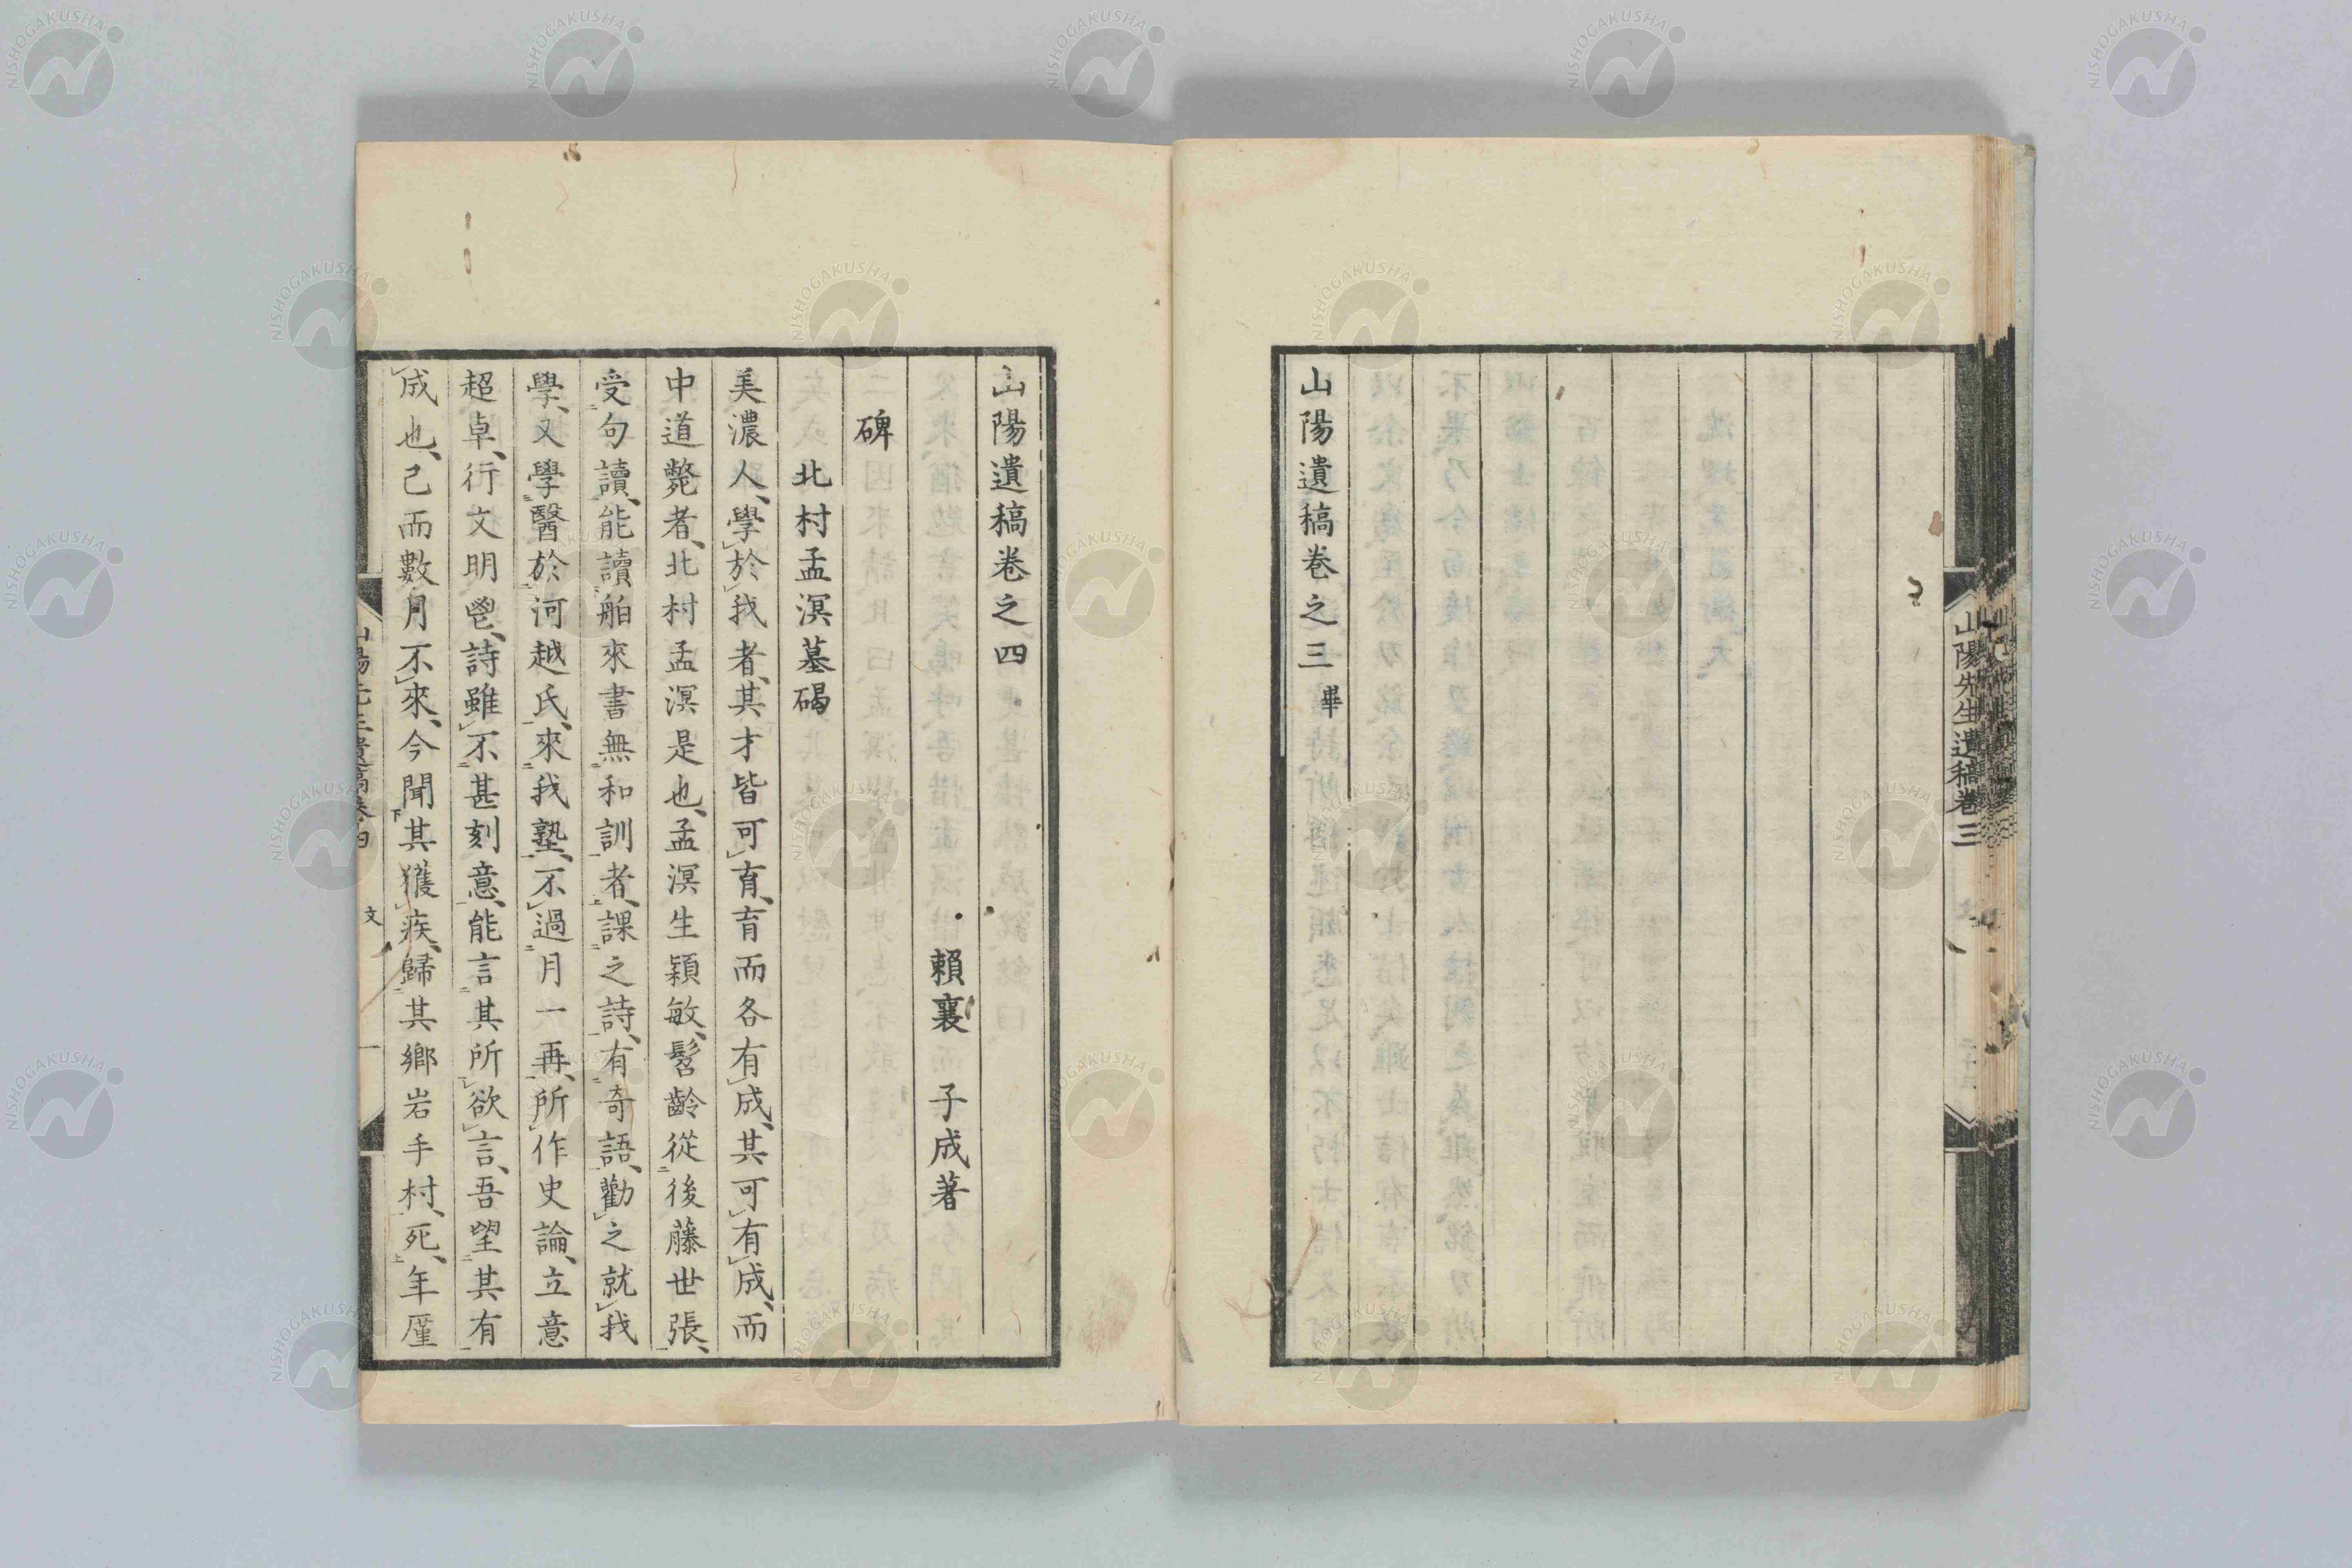 山陽先生遺稿卷三
山陽遺稿卷之三 畢
山陽遺稿卷之四
賴襄 子成著
碑
北村孟溟墓碣
美濃人、學於我者、其才皆可育、育而各有成、其可有成、而
中道斃者、北村孟溟是也、孟溟生穎敏、髫齡從後藤世張、
受句讀、能讀舶來書無和訓者、課之詩、有奇語、勸之就我
學、又學醫於河越氏、來我塾、不過月一再、所作史論、立意
超卓、行文明鬯、詩雖不甚刻意、能言其所欲言、吾望其有
成也、已而數月不來、今聞其獲疾、歸其鄉岩手村、死、年厪
山陽先生遺稿卷四
文
一
NISHOGAKUSHA